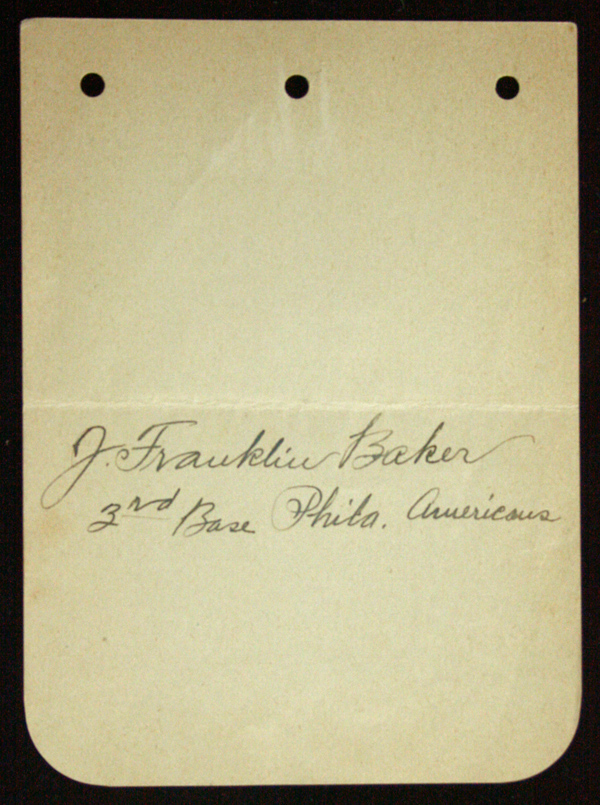 J. Franklin Baker
3rd Base Phila. Americans